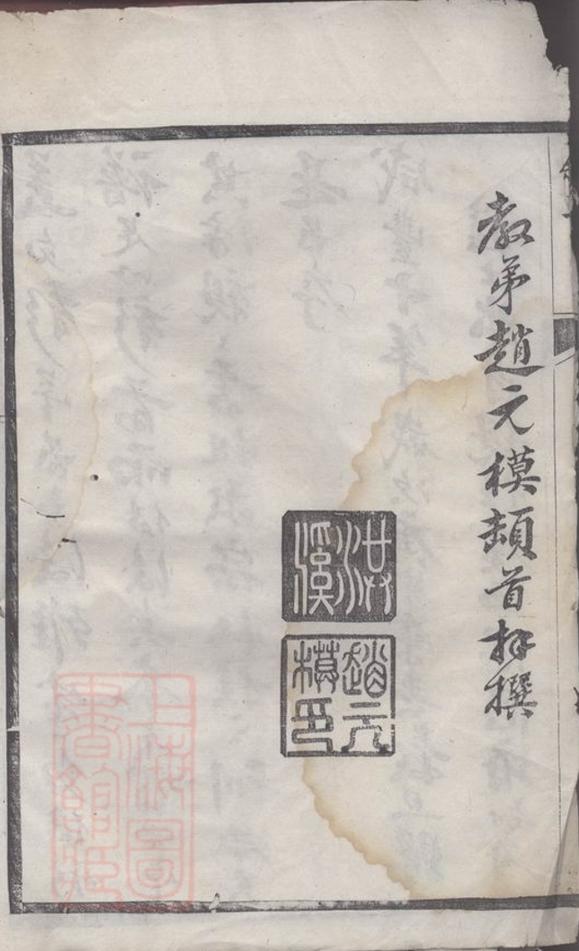 教弟趙元模頓首拜撰
洪溪
趙元模印
上海圖書館藏